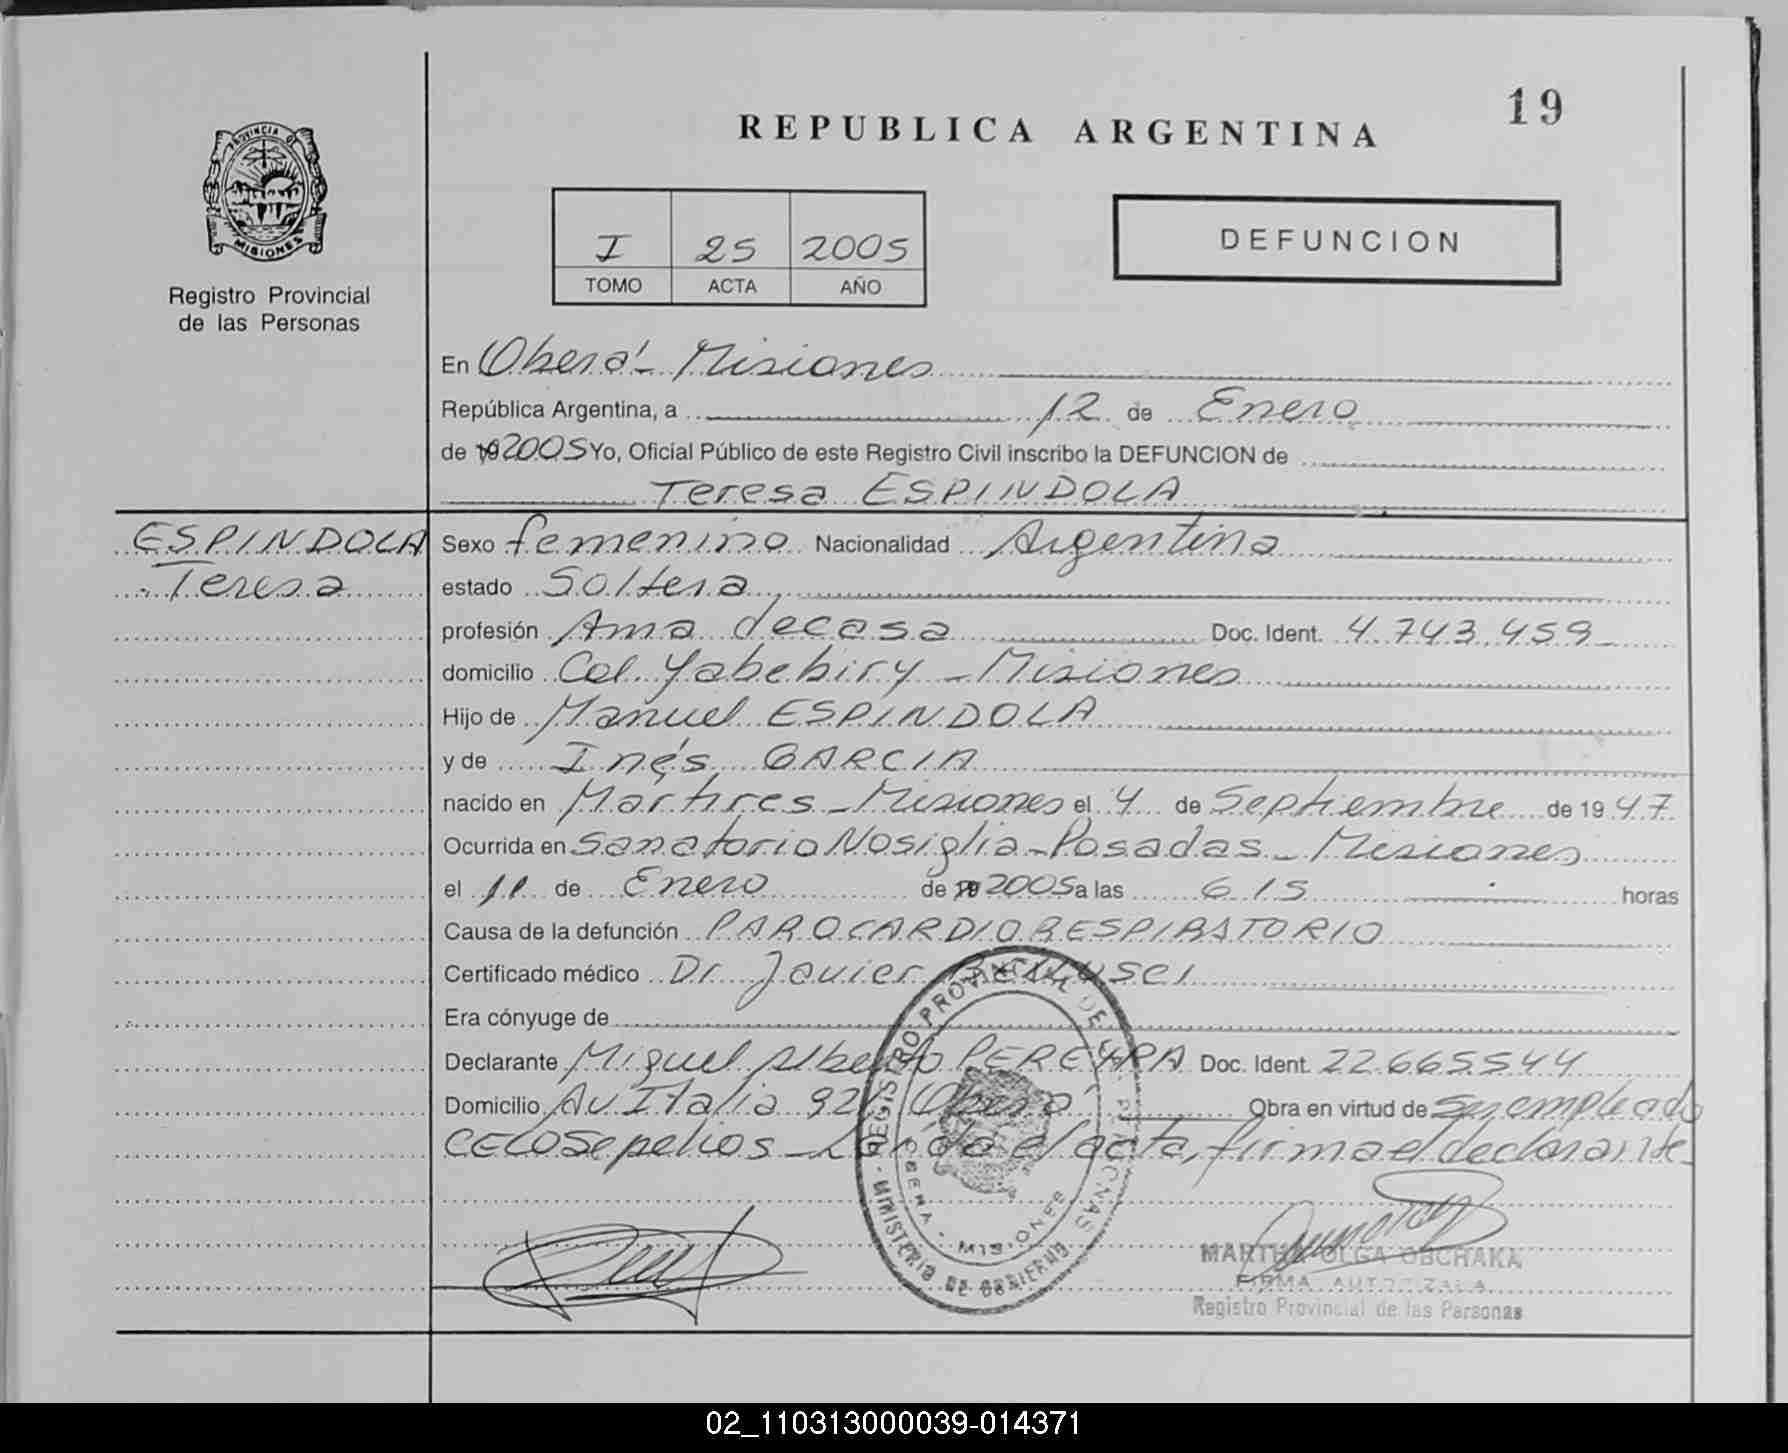 19
REPUBLICA ARGENTINA
PROVINCIA D
MISIONES
Registro Provincial
de las Personas
I 25 2005
TOMO ACTA AÑO
DEFUNCION
En Oberá - Misiones
República Argentina, a 12 de Enero
de 19 2005 Yo, Oficial Público de este Registro Civil inscribo la DEFUNCION de
Teresa ESPINDOLA
ESPINDOLA
Teresa
Sexo femenino Nacionalidad Argentina
estado Soltera
profesión Ama decasa Doc. Ident. 4.743.459
domicilio Col. Yabebiry - Misiones
Hijo de Manuel ESPINDOLA
y de Inés GARCIA
nacido en Martires - Misiones el 4 de Septiembre de 1947
Ocurrida en Sanatorio Nosiglia - Posadas - Misiones
el 11 de Enero de 19 2005 a las 6 15 horas
Causa de la defunción PAROCARDIORESPIRATORIO
Certificado médico Dr. Javier
Era cónyuge de
Declarante Miguel Alberto PEREYRA Doc. Ident. 22.665544
Domicilio Av Italia 921 Oberá Obra en virtud de ser empleado
CELOSepelios - Leida el acta, firma el declarante -
REGISTRO PROVINCIAL DE LAS PERSONAS
OBERA - MISIONES
MINISTERIO DE GOBIERNO
MARTHA OLGA OBCHAKA
FIRMA AUTORIZADA
Registro Provincial de las Personas
02_110313000039-014371